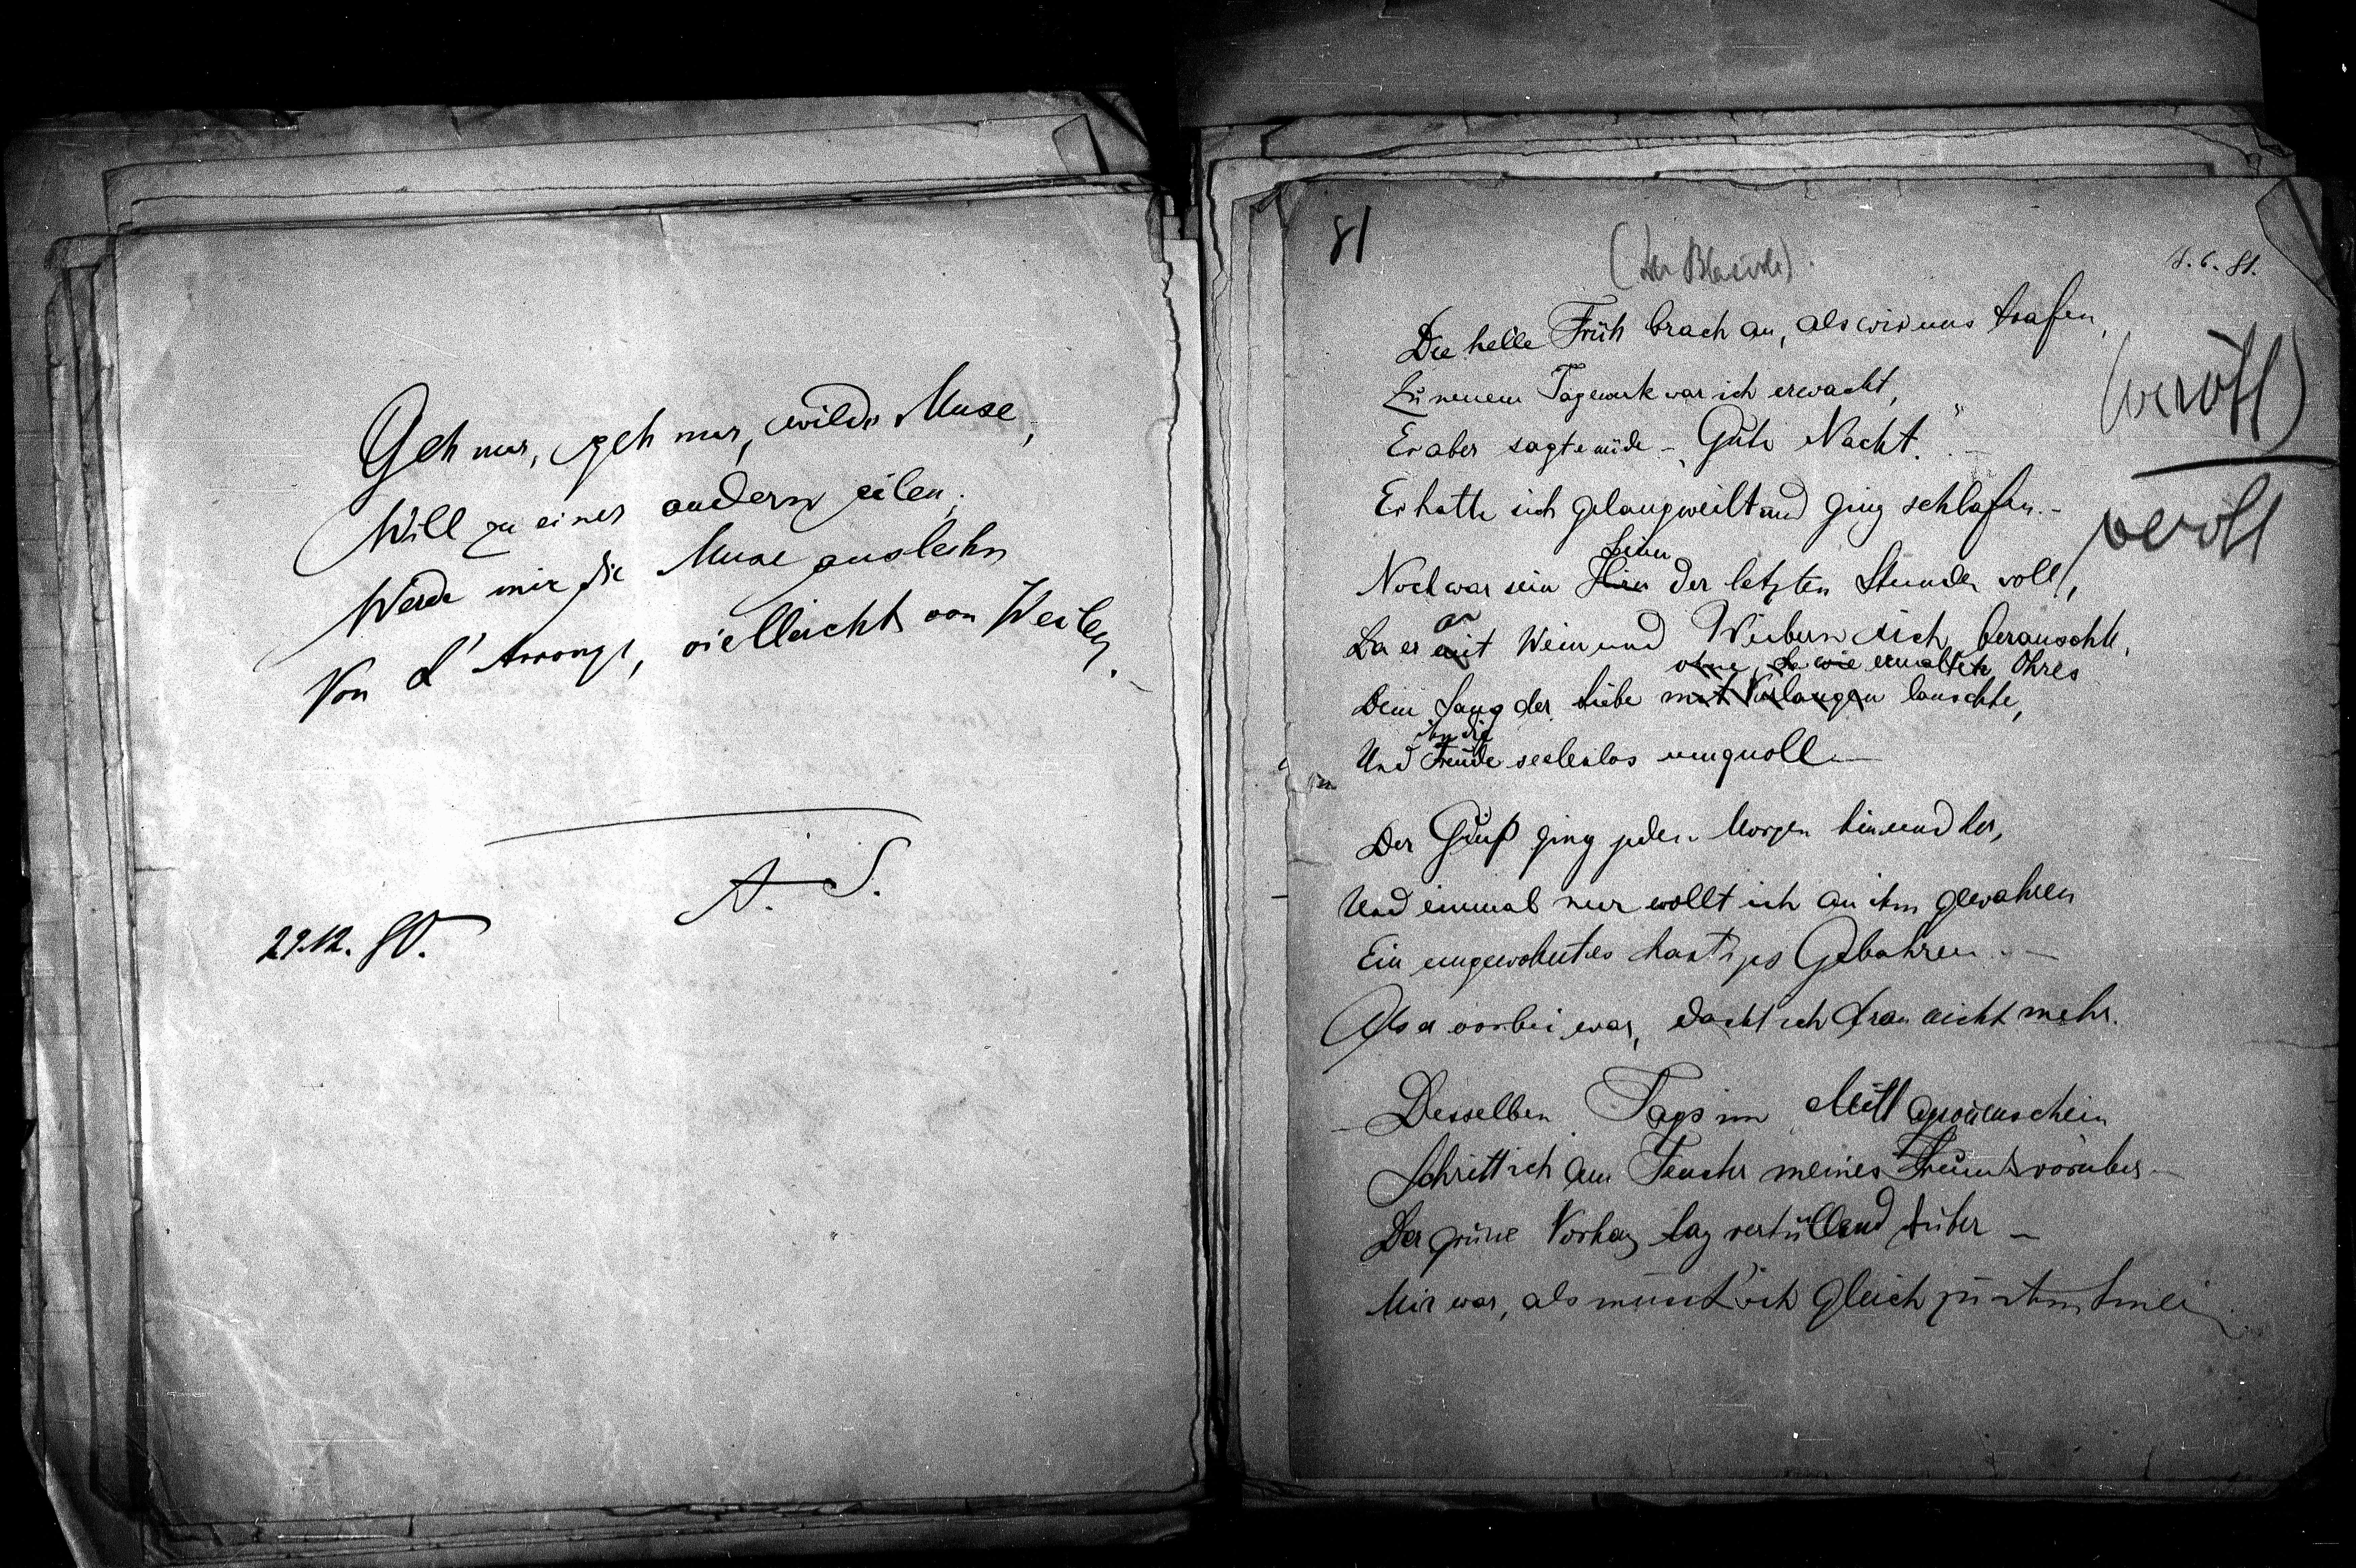 Geh nur, geh nur, wilde Muse,
Will zu einer andern eilen;
Werde mir die Muse ausleihn
Von L'Arronge, vielleicht von Weilen.
A. S.
29.12. 80.
81
(Der Blasirte).
8.6.81.
Die helle Früh brach an, als wir uns trafen,
Zu neuem Tagewerk war ich erwacht,
Er aber sagte müde – „Gute Nacht."
Er hatte sich gelangweilt und ging schlafen. –
(veröff)
veröff
Sinn
Noch war sein Hirn der letzten Stunden voll,
an
Da er mit Wein und Weibern sich berauschte,
ohne, wie ermalten Ohres
Dem Sang der Liebe mit Verlangen lauschte,
ihn die
Und Freude seelenlos umquoll. –
Der Gruß ging jeden Morgen hin und her,
Und einmal nur wollt ich an ihm gewahren
Ein ungewohntes hastges Gebahren. –
Als er vorbei war, dacht ich dran nicht mehr.
Desselben Tags im Mittagssonnenschein
Schritt ich am Fenster meines Freunds vorüber –
Der grüne Vorhang lag verhüllend drüber –
Mir war, als müsst' ich gleich zu ihm hinein